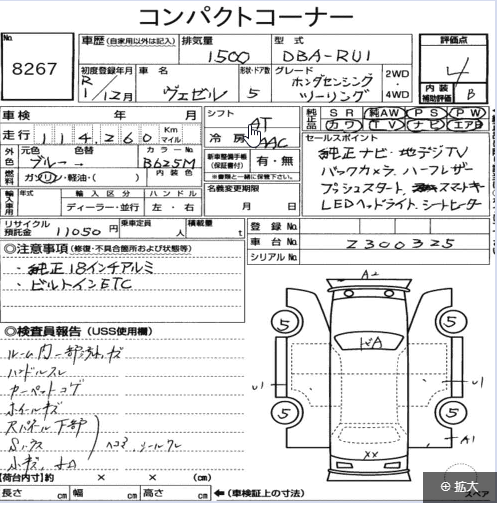 コンパクトコーナー
No. 8267
車歴 (自家用以外は記入) 排気量 1500 型式 DBA-RU1
評価点 4
内装補助評価 B
初度登録年月 R1/12月 車名 ヴェゼル 形状・ドア数 5 グレード ホンダセンシング ツーリング 2WD・4WD
車検 年 月
シフト AT
冷房 AAC
純正品 SR 純AW PS PW
カワ TV ナビ エアB
走行 114,260 Km マイル
セールスポイント
純正ナビ・地デジTV
バックカメラ、ハーフレザー
プッシュスタート、スマートキー
LEDヘッドライト、シートヒーター
外色 元色 ブルー 色替 → カラーNo. B625M
内装色
燃料 ガソリン・軽油・( )
新車整備手帳 (保証書付) 有・無
※書類と一緒に保管下さい。
名義変更期限 月 日
輸入車用 年式 輸入区分 ディーラー・並行 ハンドル 左・右
リサイクル預託金 11050円 乗車定員 人 積載量 t
登録No.
車台No. 2300325
シリアルNo.
◎注意事項 (修復・不具合箇所および状態等)
・純正18インチアルミ
・ビルトインETC
◎検査員報告 (USS使用欄)
ルーム内一部汚れキズ
ハンドルスレ
カーペットコゲ
ホイールキズ
下部
ヘコミ
小キズ
A2
5 5
トビA
U1 U1
5 5
A1
XX
【荷台内寸】約 × × (cm)
長さ cm 幅 cm 高さ cm ←(車検証上の寸法)
スペア
拡大